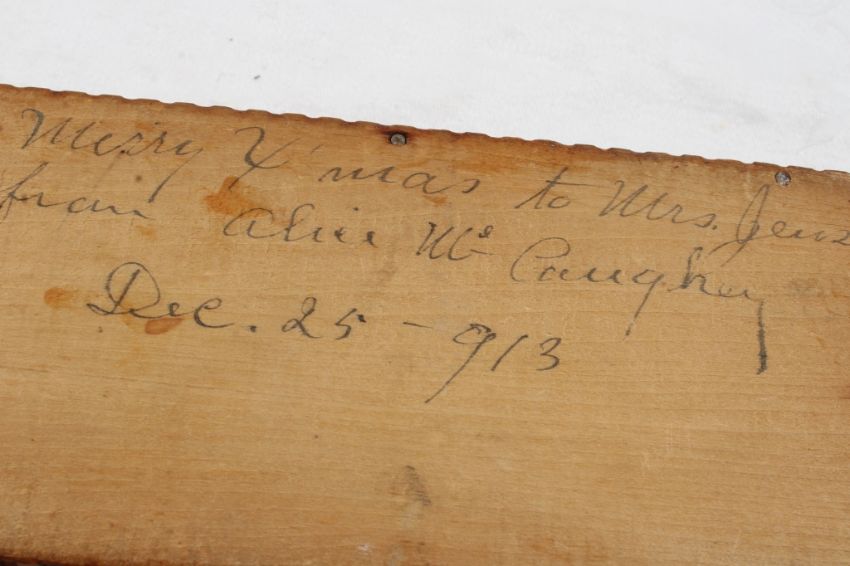 Merry X'mas to Mrs.
from Alice Mc Caughey
Dec. 25 - 913